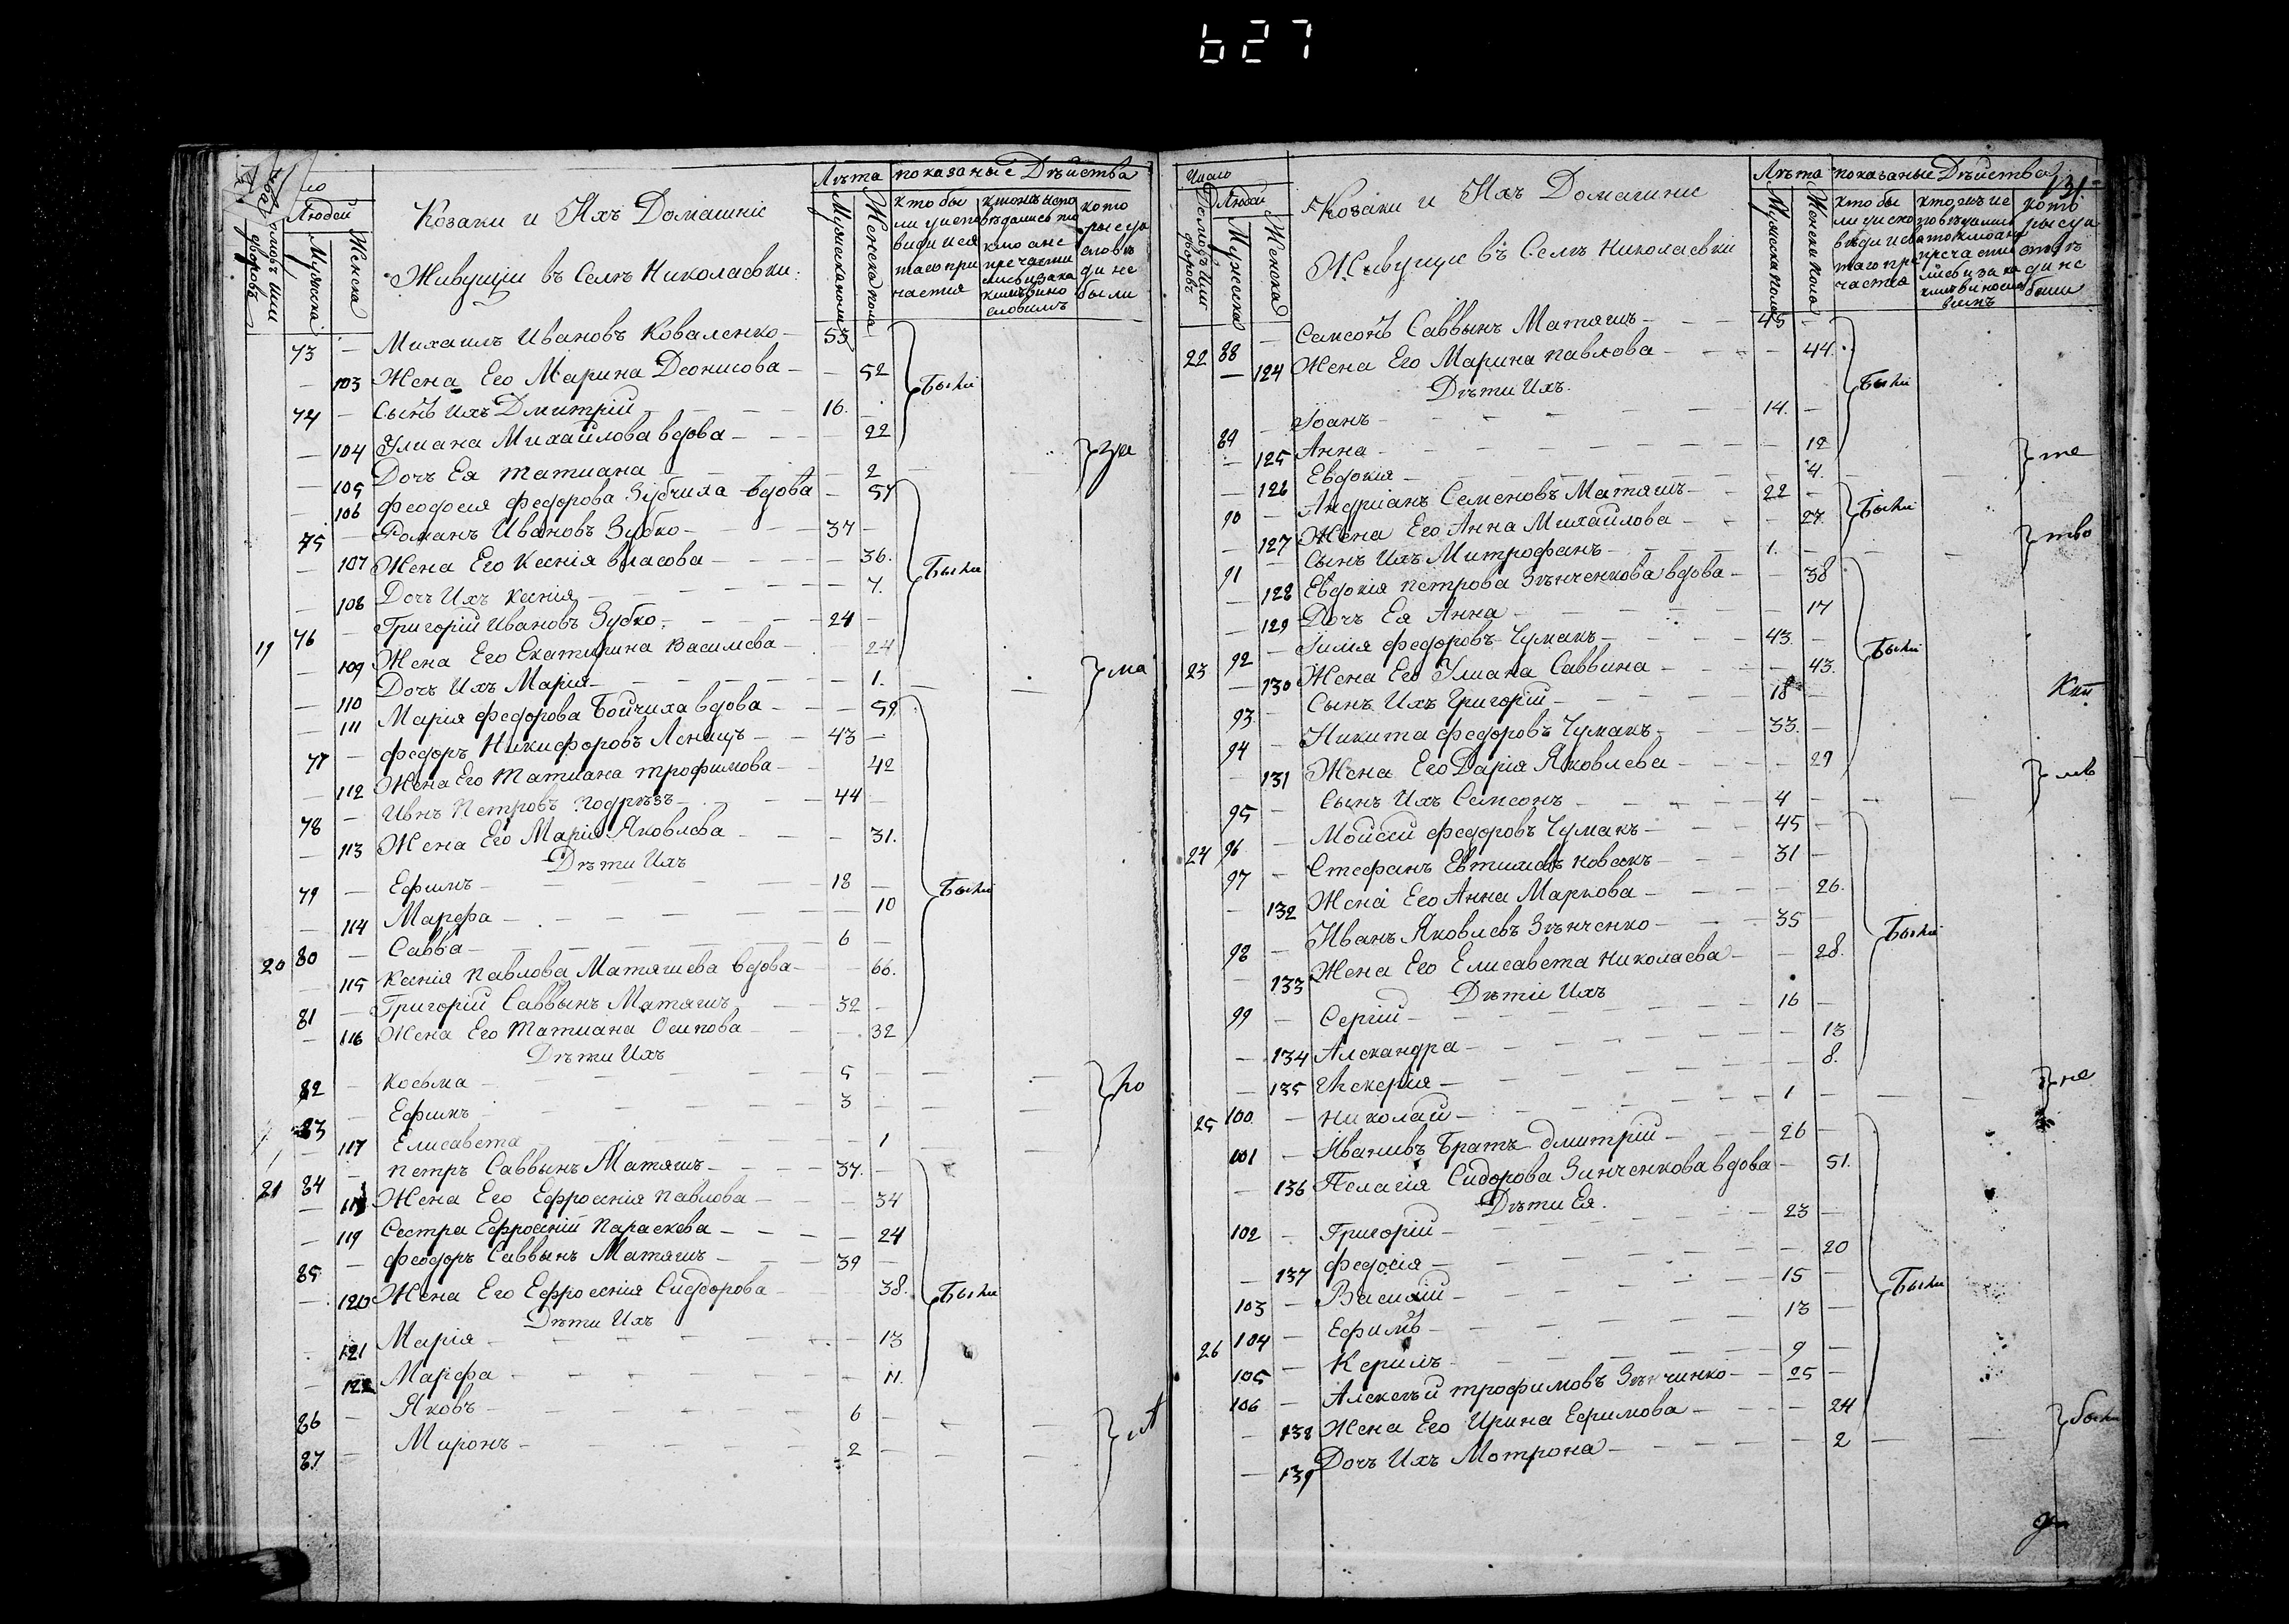 627
Людей
Мужска
Женска
Козаки и Ихъ Домашніе
Живущіи въ Селѣ Николаевки
Лѣта
Мужска пола
Женска пола
показаные Дѣйства
кто бы
73 — Михаилъ Ивановъ Коваленко — 53 —
— 103 Жена Его Марина Деонисова — — 52 Были
74 — Сынъ Ихъ Дмитрій — 16. —
— 104 Улиана Михайлова вдова — — 22
— 105 Дочъ Ея Татиана — — 2
— 106 Феодосія Федорова Зубчиха вдова — 57
75 — Романъ Ивановъ Зубко — 37 —
— 107 Жена Его Ксенія Власова — — 36. Были
— 108 Дочъ Ихъ Ксенія — — 7.
19 76 — Григорій Ивановъ Зубко — 24 —
— 109 Жена Его Екатирина Василева — — 24
— 110 Дочъ Ихъ Марія — — 1. ма
— 111 Марія Федорова Бойчиха вдова — — 59
77 — Федоръ Никифоровъ — 43 —
— 112 Жена Его Татиана Трофимова — — 42
78 — Ивнъ Петровъ Подрѣзъ — 44 —
— 113 Жена Его Марія Яковлева — — 31.
Дѣти Ихъ
79 — Ефимъ — 18 — Были
— 114 Марфа — — 10
20 80 — Савва — 6 —
— 115 Ксенія Павлова Матяшева вдова — — 66.
81 — Григорій Саввынъ Матяшъ — 32 —
— 116 Жена Его Татиана Осипова — — 32
Дѣти Ихъ
82 — Косьма — 5 — по
83 — Ефимъ — 3 —
— 117 Елисавета — — 1
21 84 — Петръ Саввынъ Матяшъ — 37. —
— 118 Жена Его Ефросинія Павлова — — 34
— 119 Сестра Ефросиній Параскева — — 24
85 — Феодоръ Саввынъ Матяшъ — 39 —
— 120 Жена Его Ефросинія Сидорова — — 38. Были
Дѣти Ихъ
— 121 Марія — — 13
— 122 Марфа — — 11.
86 — Яковъ — 6 —
87 — Миронъ — 2 —
131
Число
Домовъ или дворовъ
Людей
Мужска
Женска
Козаки и Ихъ Домашніе
Живущіе въ Селѣ Николаевки
Лѣта
Мужска пола
Женска пола
показаные Дѣйства
кто бы
22 88 — Самсонъ Саввынъ Матяшъ — 45 —
— 124 Жена Его Марина Павлова — — 44.
Дѣти Ихъ. Были
89 — Іоанъ — 14. —
— 125 Анна — — 12
— 126 Евдокія — — 4. те
90 — Андріанъ Семеновъ Матяшъ — 22 —
— 127 Жена Его Анна Михайлова — — 27 Были
91 — Сынъ Ихъ Митрофанъ — 1. — тво
— 128 Евдокія Петрова Зѣнченкова вдова — — 38
— 129 Дочъ Ея Анна — — 17
23 92 — Іилія Федоровъ Чумакъ — 43. — Были
— 130 Жена Его Улиана Саввина — — 43.
93 — Сынъ Ихъ Григорій — 18 —
94 — Никита Федоровъ Чумакъ — 33. —
— 131 Жена Его Дарія Яковлева — — 29
95 — Сынъ Ихъ Самсонъ — 4 —
24 96 — Моисей Федоровъ Чумакъ — 45 —
97 — Стефанъ Евтихіевъ Новакъ — 31 —
— 132 Жена Его Анна Маркова — — 26.
98 — Иванъ Яковлевъ Зѣнченко — 35 — Были
— 133 Жена Его Елисавета Николаева — — 28.
Дѣти Ихъ
99 — Сергій — 16 —
— 134 Алекандра — — 13
— 135 Гликерія — — 8. не
25 100 — Николай — 1 —
101 — Ивановъ Братъ Дмитрій — 26 —
— 136 Пелагія Сидорова Зинченкова вдова — 51.
Дѣти Ея.
102 — Григорій — 23 —
— 137 Федосія — — 20
103 — Василій — 15 — Были
26 104 — Ефимъ — 13 —
105 — Кирилъ — 9 —
106 — Алексѣй Трофимовъ Зѣнчинко — 25 —
— 138 Жена Его Ирина Ефимова — — 24
— 139 Дочъ Ихъ Мотрона — — 2